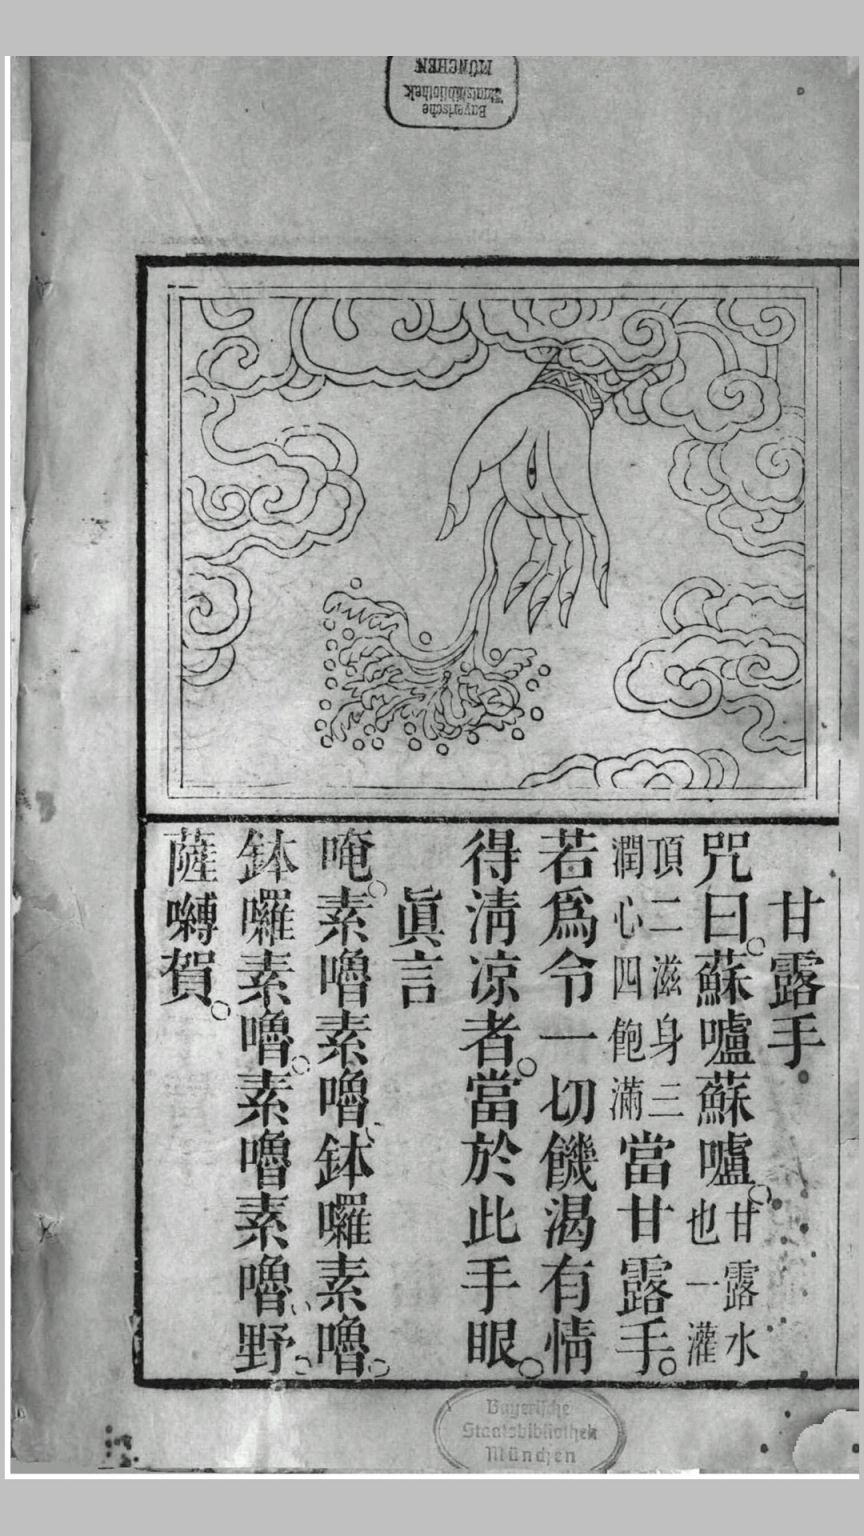 Bayerische
Staatsbibliothek
MÜNCHEN
甘露手
咒曰。蘇嚧蘇嚧。甘露水也一灌
頂二滋身三潤心四飽滿當甘露手。
若爲令一切饑渴有情
得淸凉者。當於此手眼。
眞言
唵。素嚕素嚕鉢囉素嚕。
鉢囉素嚕。素嚕素嚕野。
薩嚩賀。
Bayerische
Staatsbibliothek
München